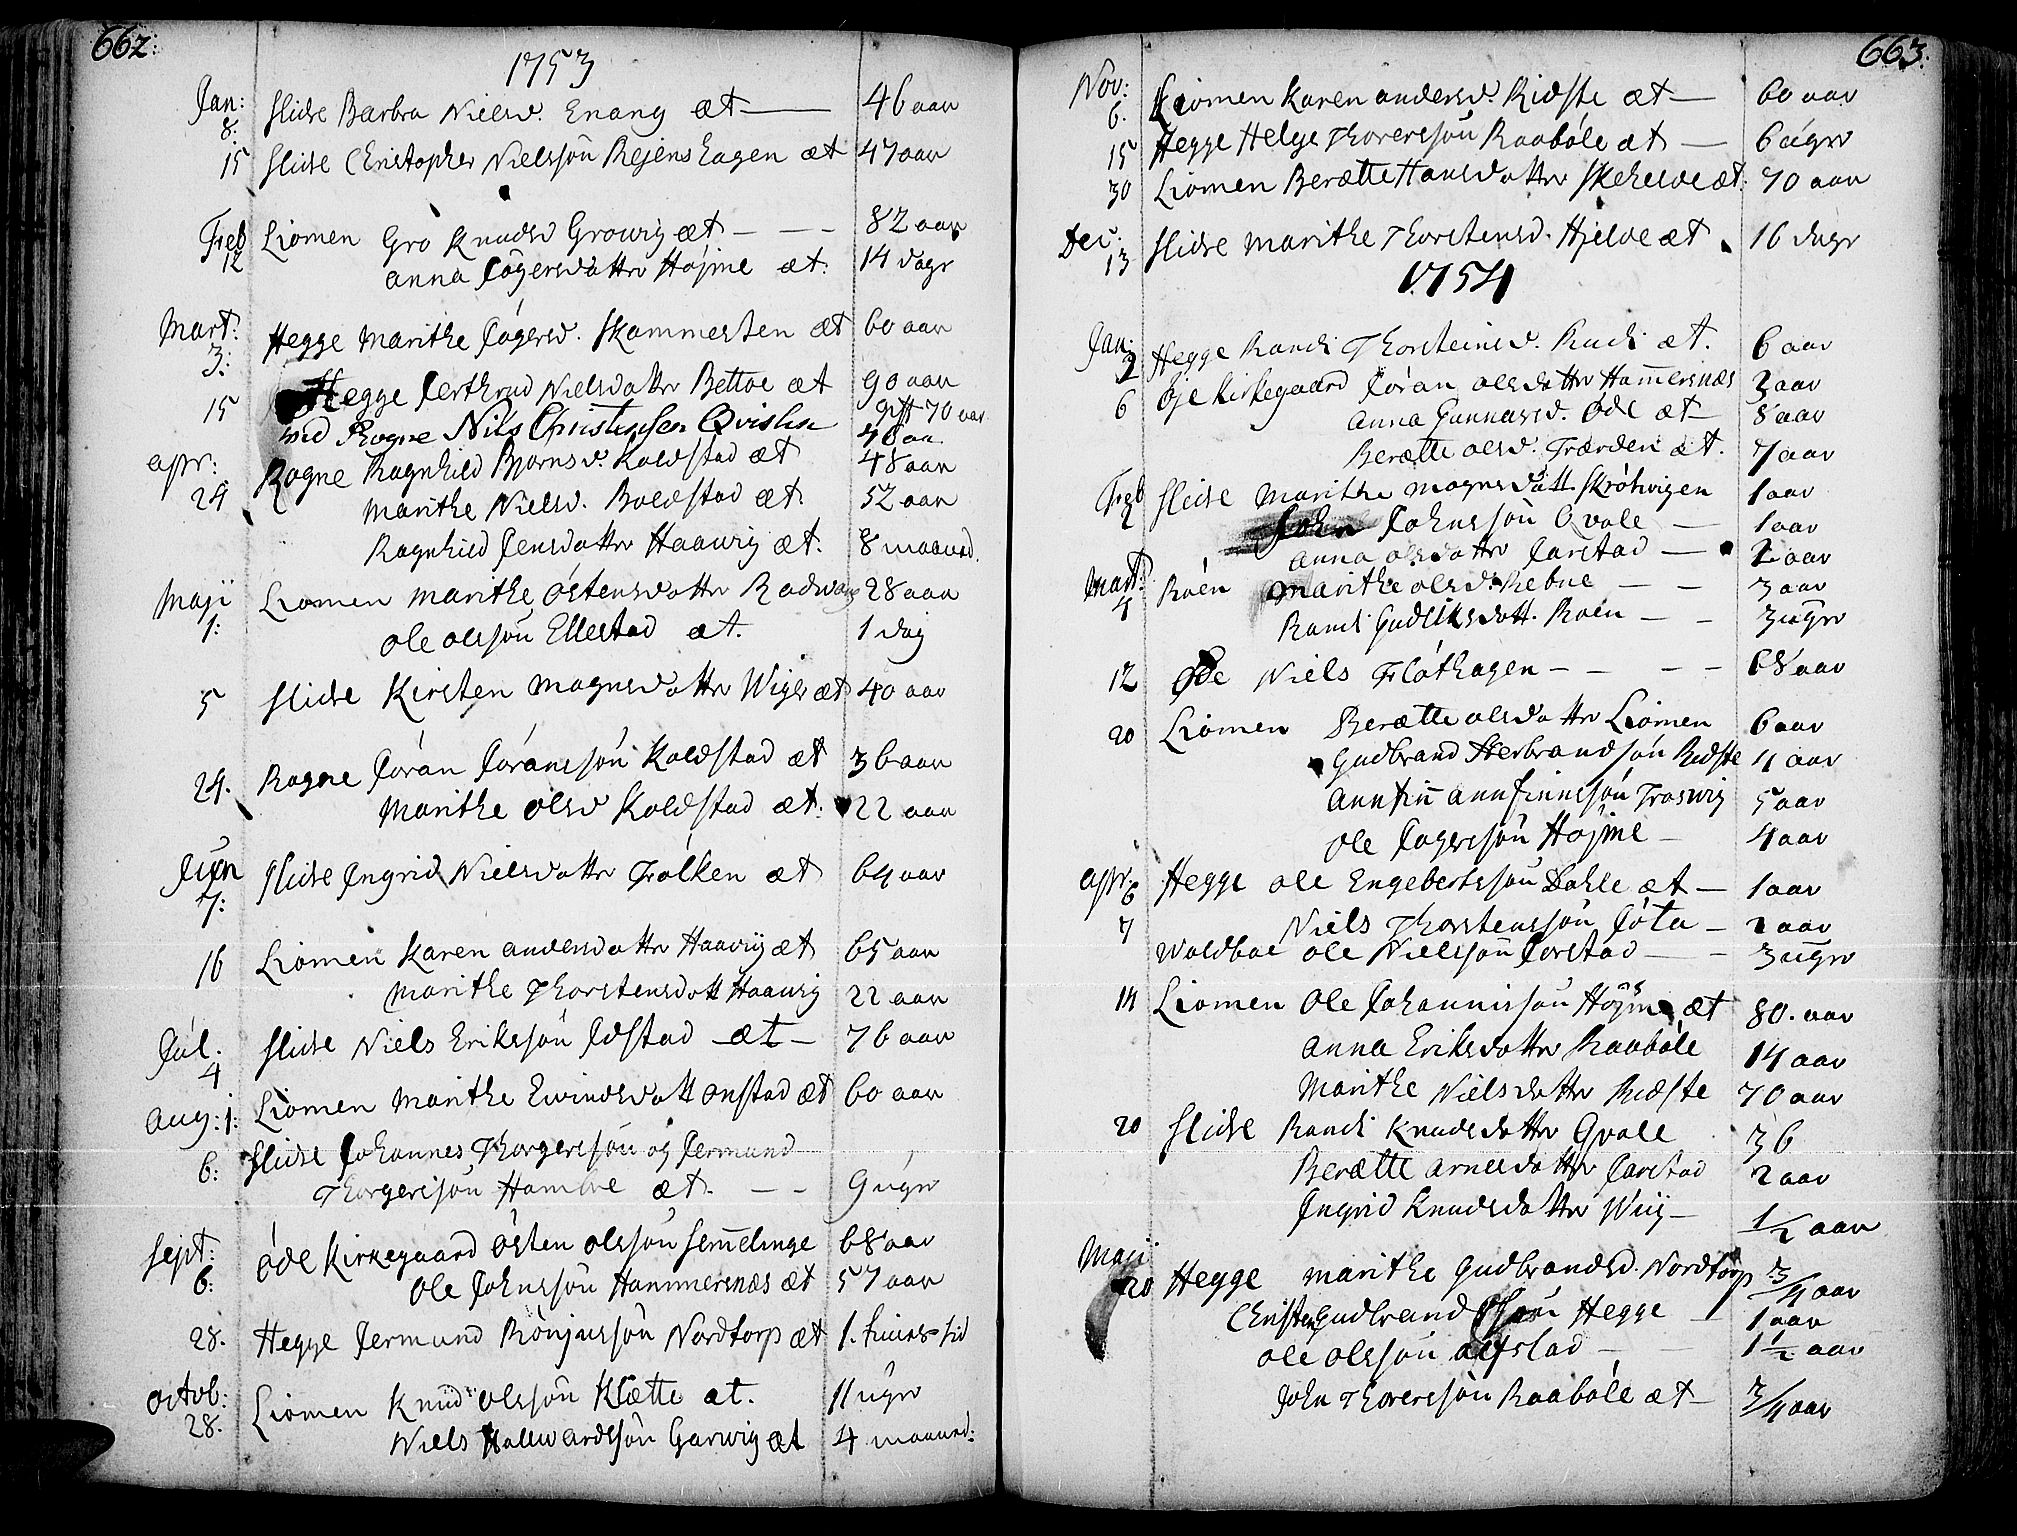 662:
1753
Jan: 8: Slidre Barbra Nielsd. Enang æt — 46 aar
15 Slidre Christopher Nielssøn Rejens hagen æt 47 aar
Feb 12 Liomen Gro Knudsd Growig æt - - - 82 aar
anna Jøgersdatter Højme æt. 14 dagr
Mart: 3: Hegge Marithe Jøgersd. Skammesten æt 60 aar
15 Hegge Jerthrud Nielsdatter Bettoe æt 90 aar
gift 70 aar
med Rogne Nils Christensen Qvisten
apr: 24 Rogne Ragnhild Bjørnsd. Koldstad æt 48 aar
Marithe Nielsd. Boldstad æt 52 aar
Ragnhild Jensdatter Haawig æt. 8 maaned.
Maji 1: Liomen Marithe Østensdatter Rodwang 28 aar
ole olssøn Ellestad æt. 1 dag
5 Slidre Kirsten Magnsdatter Wiger æt 40 aar
24. Rogne Jøran Jøranssøn Koldstad æt 36 aar
Marithe olsd Koldstad æt: 22 aar
Jun 7: Slidre Jngrid Nielsdatter Følken æt 64 aar
16 Liomen Karen andersdatter Haawig æt 65 aar
Marithe Thorstensdatt Haawig 22 aar
Jul. 4 Slidre Niels Erikssøn Jdstad æt - 76 aar
Aug: 1: Liomen Marithe Ewindsdatt onstad æt 60 aar
6: Slidre Johannes Thorgerssøn og Jermund
Thorgerssøn Hambre æt. - - 9 ugr
Sept: 6: øde Kirkegaard østen olssøn Semmelinge 68 aar
ole Johnssøn Hammersnæs æt 57 aar
28. Hegge Jermund Rønjussøn Nordtorp æt 1. times tid
octob: 28. Liomen Knud olssøn Klette æt. 11 ugr
Niels Hallwardssøn Garwig æt 4 maaned:
663.
Nov: 6. Liomen Karen andersd. Ridste æt — 60 aar
15 Hegge Helge Thorerssøn Raabøle æt — 6 ugr
30 Liomen Berætte Hansdatter Skehelde æt. 70 aar
Dec: 13 Slidre Marithe Thorstensd. Hjelde æt 16 dagr
1754
Jan: 2 Hegge Randi Thorsteinsd. Rudi æt. 6 aar
6 Øje Kirkegaard Jøran olsdatter Hammersnæs 3 aar
anna Gunnarsd. øde æt 8 aar
Berætte olsd. Trærden æt. 7 aar
Feb 2 Slidre Marithe Magnsdatt Skrøthwigen 1 aar
John Johnssøn Qvale — 1 aar
anna olsdatter Jarstad — 2 aar
Mart: 4 Røen Marithe olsd. Rebne - - 3 aar
Randi Gudliksdatt. Røen - - 3 ugr
12 Øde Niels Fløthagen - - - - 68 aar
20 Liomen Berætte olsdatter Liomen 6 aar
Gudbrand Herbrandssøn Ridste 11 aar
Annfinn annfinnssøn Troswig 5 aar
ole Jøgerssøn Højme - 4 aar
apr. 6 Hegge ole Engebertssøn Dahle æt - 1 aar
7 Niels Thorstenssøn Jøta - 2 aar
Woldboe ole Nielssøn Jarstad - - 3 ugr
14 Liomen Ole Johannissøn Højme æt 80. aar
Anna Eriksdatter Raabøle 14 aar
Marithe Nielsdatter Ridste 70 aar
20 Slidre Randi Knudsdatter Qvale 36
Berætte arnesdatter Jarstad 2 aar
Jngrid Knudsdatter Wiig - 1/2 aar
Maji 20 Hegge Marithe Gudbrandsd. Nordtorp 3/4 aar
Christen Gudbrandssøn Hegge - 1 aar
ole olssøn alfstad - - 1 1/2 aar
John Thorerssøn Raabøle æt - 3/4 aar